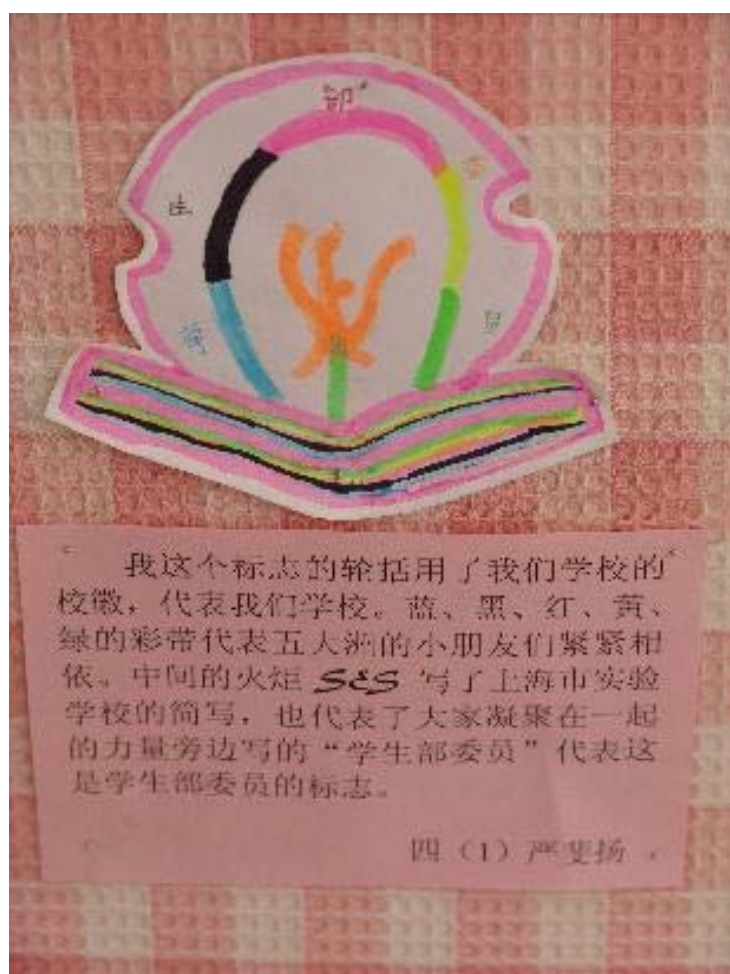 学生部委员
我这个标志的轮括用了我们学校的
校徽，代表我们学校。蓝、黑、红、黄、
绿的彩带代表五大洲的小朋友们紧紧相
依。中间的火炬 SES 写了上海市实验
学校的简写，也代表了大家凝聚在一起
的力量旁边写的“学生部委员”代表这
是学生部委员的标志。
四（1）严斐扬